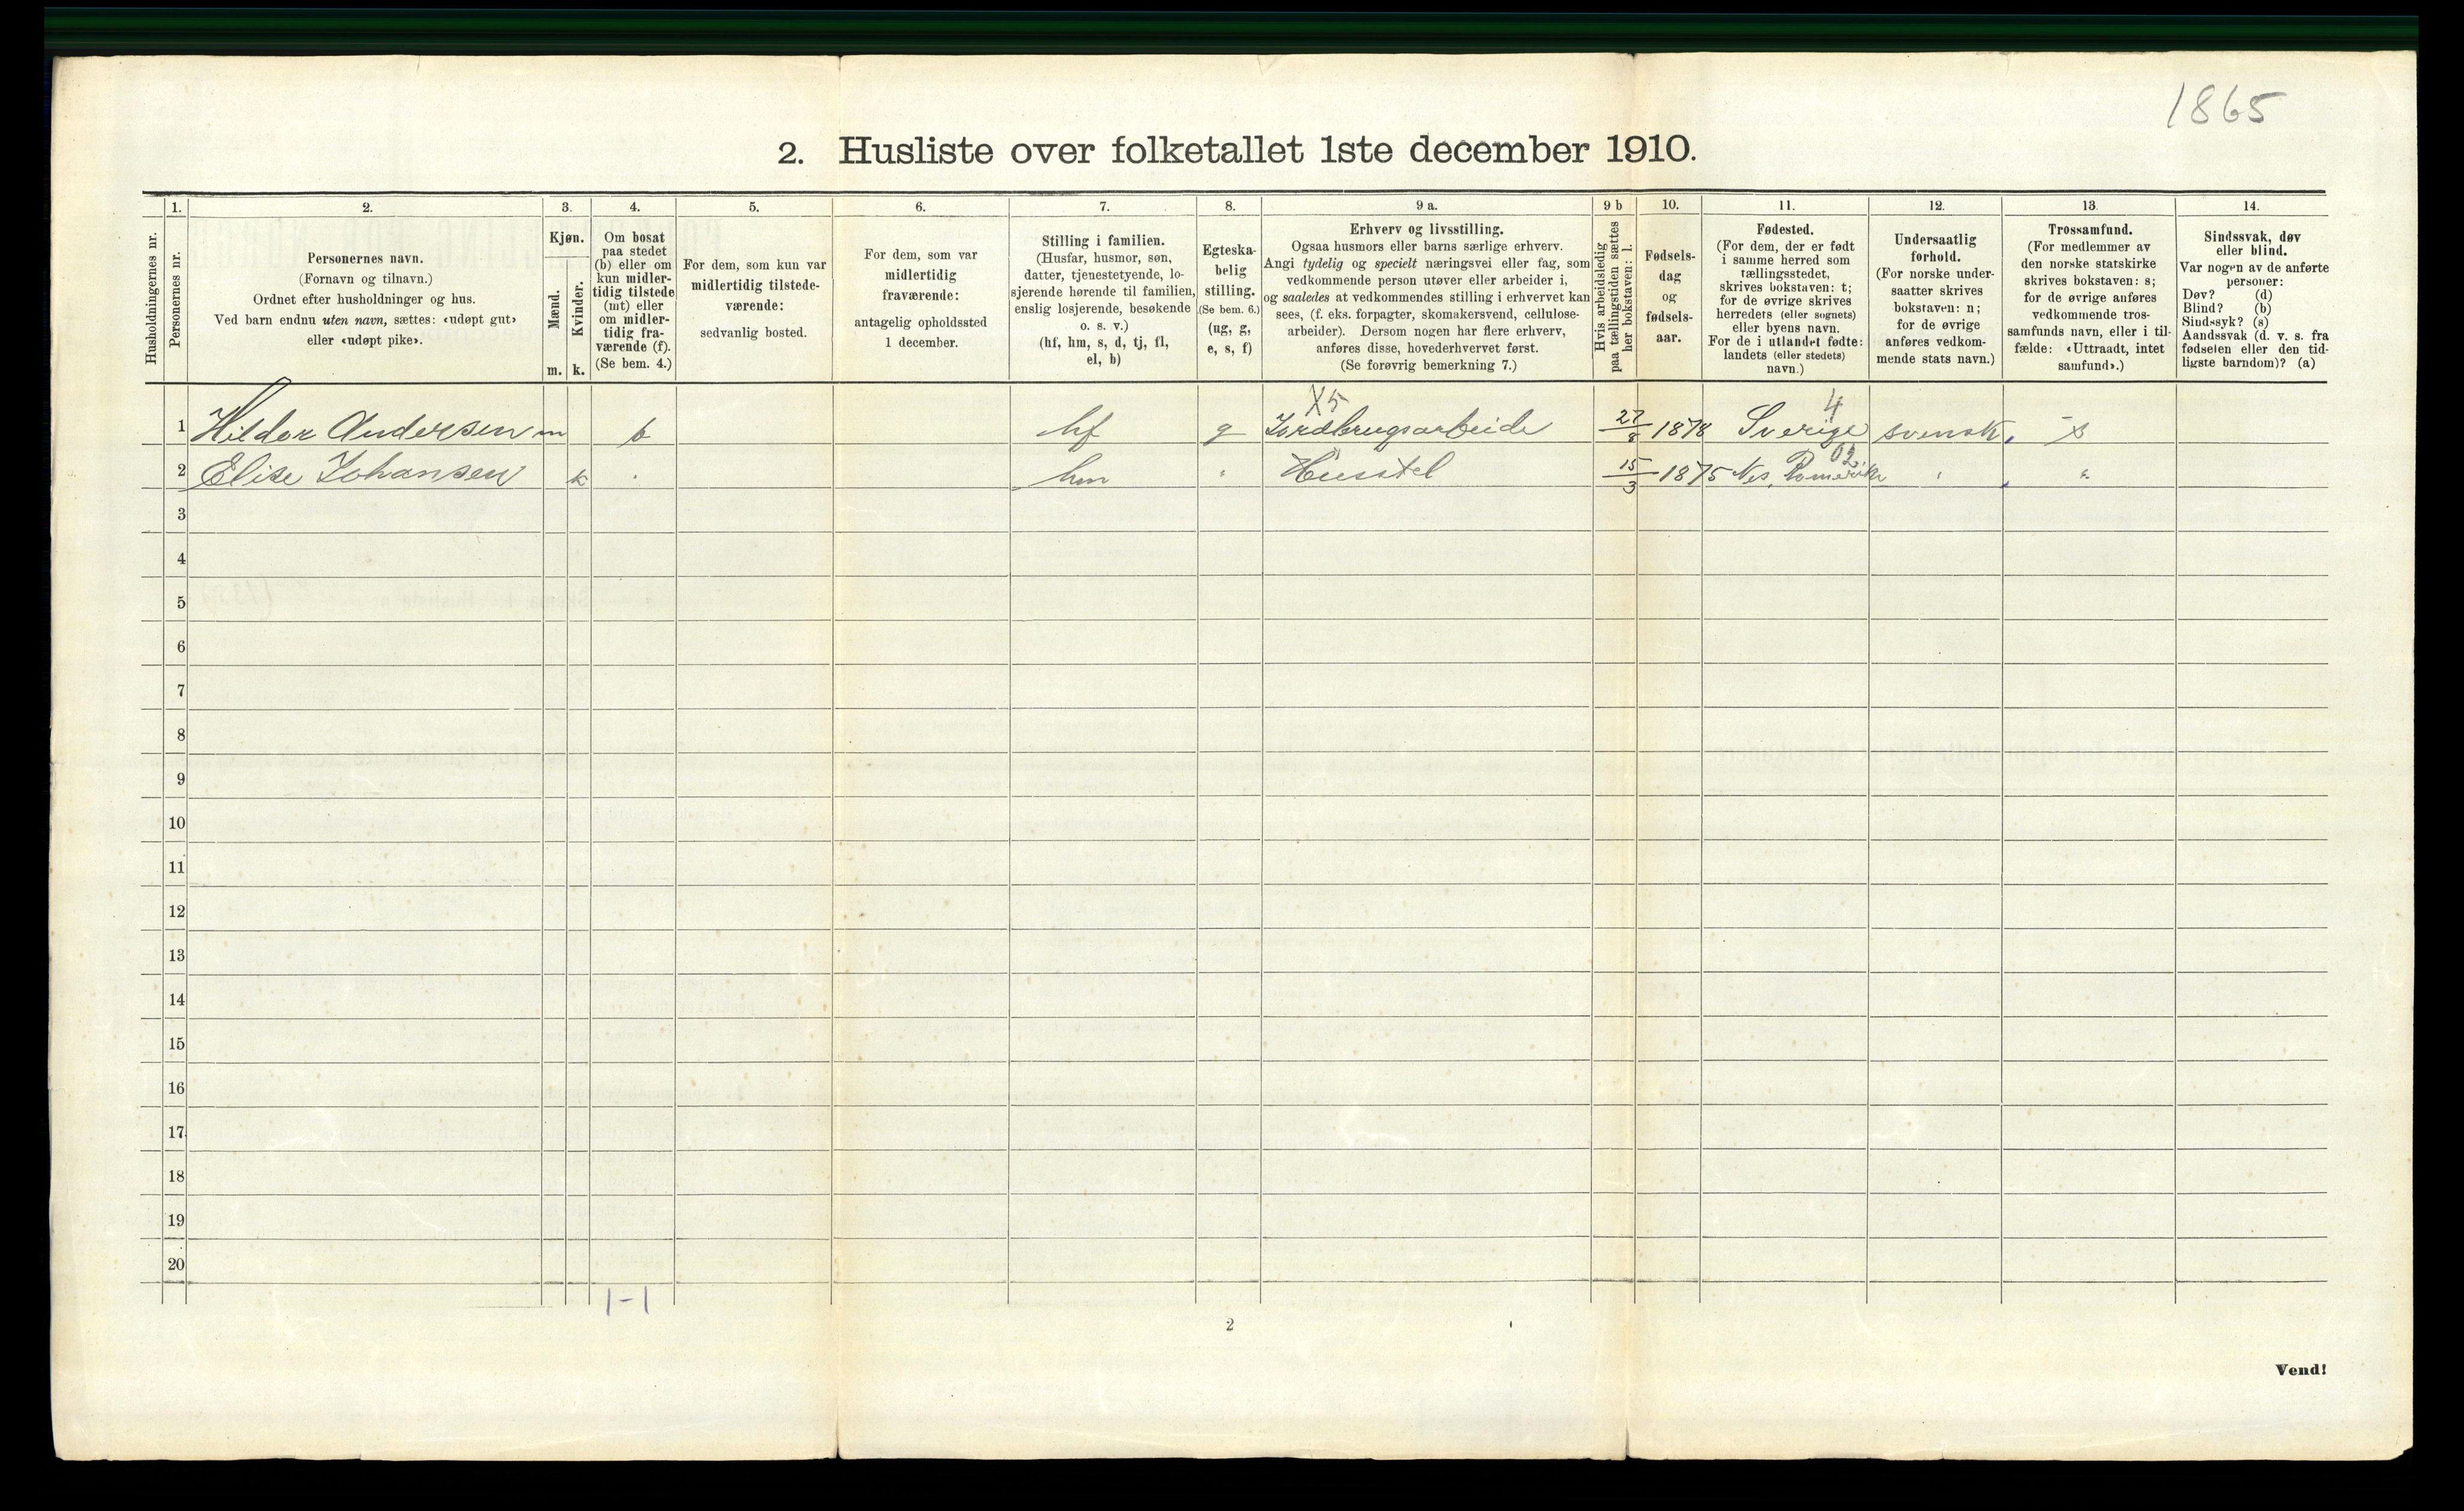 1865
2. Husliste over folketallet 1ste december 1910.
1. 2. 3. 4. 5. 6. 7. 8. 9 a. 9 b 10. 11. 12. 13. 14.
Husholdningernes nr.
Personernes nr.
Personernes navn.
(Fornavn og tilnavn.)
Ordnet efter husholdninger og hus.
Ved barn endnu uten navn, sættes: «udøpt gut»
eller «udøpt pike».
Kjøn.
Mænd.
Kvinder.
m. k.
Om bosat
paa stedet
(b) eller om
kun midler-
tidig tilstede
(mt) eller
om midler-
tidig fra-
værende (f).
(Se bem. 4.)
For dem, som kun var
midlertidig tilstede-
værende:
sedvanlig bosted.
For dem, som var
midlertidig
fraværende:
antagelig opholdssted
1 december.
Stilling i familien.
(Husfar, husmor, søn,
datter, tjenestetyende, lo-
sjerende hørende til familien,
enslig losjerende, besøkende
o. s. v.)
(hf, hm, s, d, tj, fl,
el, b)
Egteska-
belig
stilling.
(Se bem. 6.)
(ug, g,
e, s, f)
Erhverv og livsstilling.
Ogsaa husmors eller barns særlige erhverv.
Angi tydelig og specielt næringsvei eller fag, som
vedkommende person utøver eller arbeider i,
og saaledes at vedkommendes stilling i erhvervet kan
sees, (f. eks. forpagter, skomakersvend, cellulose-
arbeider). Dersom nogen har flere erhverv,
anføres disse, hovederhvervet først.
(Se forøvrig bemerkning 7.)
Hvis arbeidsledig
paa tællingstiden sættes
her bokstaven: l.
Fødsels-
dag
og
fødsels-
aar.
Fødested.
(For dem, der er født
i samme herred som
tællingsstedet,
skrives bokstaven: t;
for de øvrige skrives
herredets (eller sognets)
eller byens navn.
For de i utlandet fødte:
landets (eller stedets)
navn.)
Undersaatlig
forhold.
(For norske under-
saatter skrives
bokstaven: n;
for de øvrige
anføres vedkom-
mende stats navn.)
Trossamfund.
(For medlemmer av
den norske statskirke
skrives bokstaven: s;
for de øvrige anføres
vedkommende tros-
samfunds navn, eller i til-
fælde: «Uttraadt, intet
samfund».)
Sindssvak, døv
eller blind.
Var nogen av de anførte
personer:
Døv? (d)
Blind? (b)
Sindssyk? (s)
Aandssvak (d. v. s. fra
fødselen eller den tid-
ligste barndom)? (a)
X5 4
1 Hildor Andersen m b hf g Jordbrugsarbeide 27/8 1878 Sverige svensk. s
02
2 Elise Johansen k " hm " Husstel 15/3 1875 Nes, Romerike " "
3
4
5
6
7
8
9
10
11
12
13
14
15
16
17
18
19
20
1-1
2
Vend!